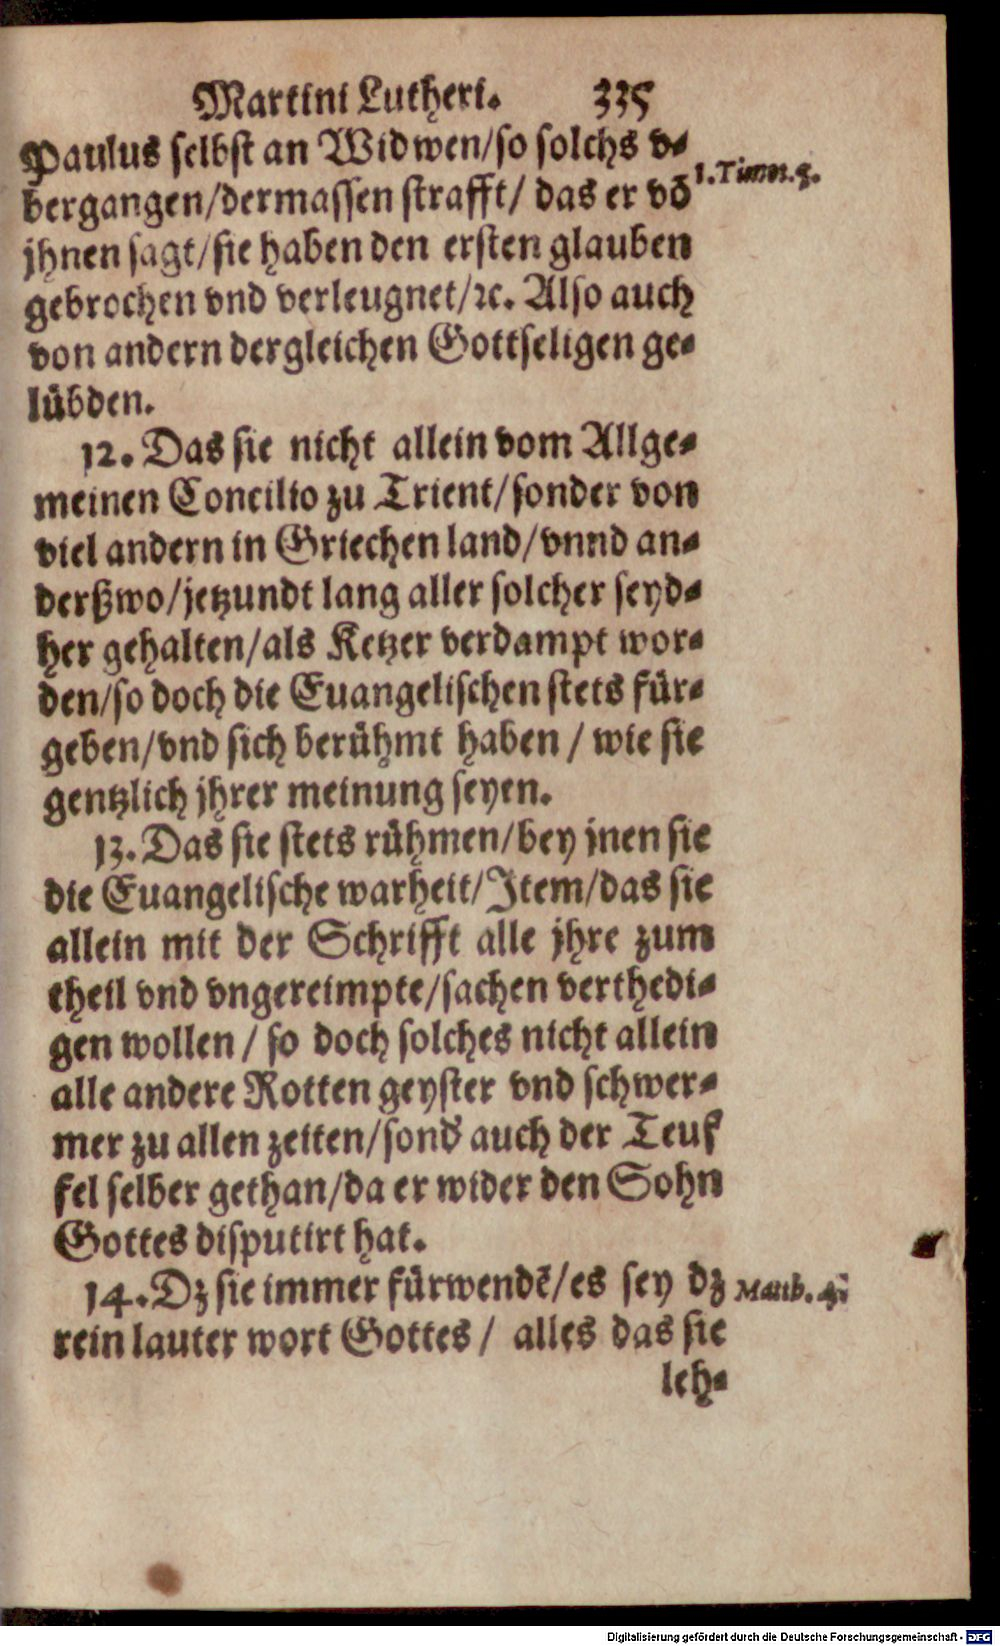 Martini Lutheri. 335
Paulus selbst an Widwen/so solchs v-
bergangen/dermassen strafft/ das er võ
1. Timot. 5.
jhnen sagt/sie haben den ersten glauben
gebrochen vnd verleugnet/ꝛc. Also auch
von andern dergleichen Gottseligen ge-
lübden.
12. Das sie nicht allein vom Allge-
meinen Concilio zu Trient/sonder von
viel andern in Griechen land/vnnd an-
derßwo/jetzundt lang aller solcher seyd-
her gehalten/als Ketzer verdampt wor-
den/so doch die Euangelischen stets für-
geben/vnd sich berühmt haben / wie sie
gentzlich jhrer meinung seyen.
13. Das sie stets rühmen/bey jnen sie
die Euangelische warheit/Item/das sie
allein mit der Schrifft alle jhre zum
theil vnd vngereimpte/sachen verthedi-
gen wollen / so doch solches nicht allein
alle andere Rotten geyster vnd schwer-
mer zu allen zeiten/sond' auch der Teuf
fel selber gethan/da er wider den Sohn
Gottes disputirt hat.
14. Dz sie immer fürwendẽ/es sey dz
Matth. 4.
rein lauter wort Gottes / alles das sie
leh-
Digitalisierung gefördert durch die Deutsche Forschungsgemeinschaft - DFG